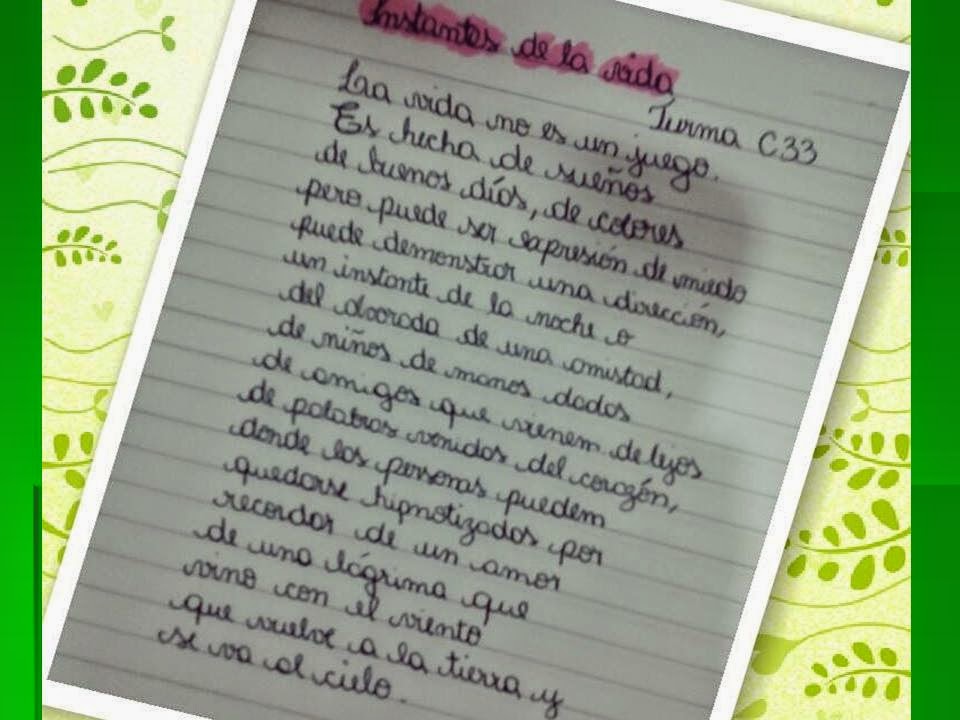 Instantes de la vida
Turma C33
La vida no es un juego.
Es hecha de sueños
de buenos días, de colores
pero puede ser expresión de miedo
puede demonstrar una dirección,
un instante de la noche o
del dorada de una amistad,
de niños de manos dados
de amigos que vienem de lejos
de palabras venidos del corazón,
donde las personas puedem
quedarse hipnotizados por
recordar de un amor
de una lágrima que
vino con el viento
que vuelve a la tierra y
se va al cielo.